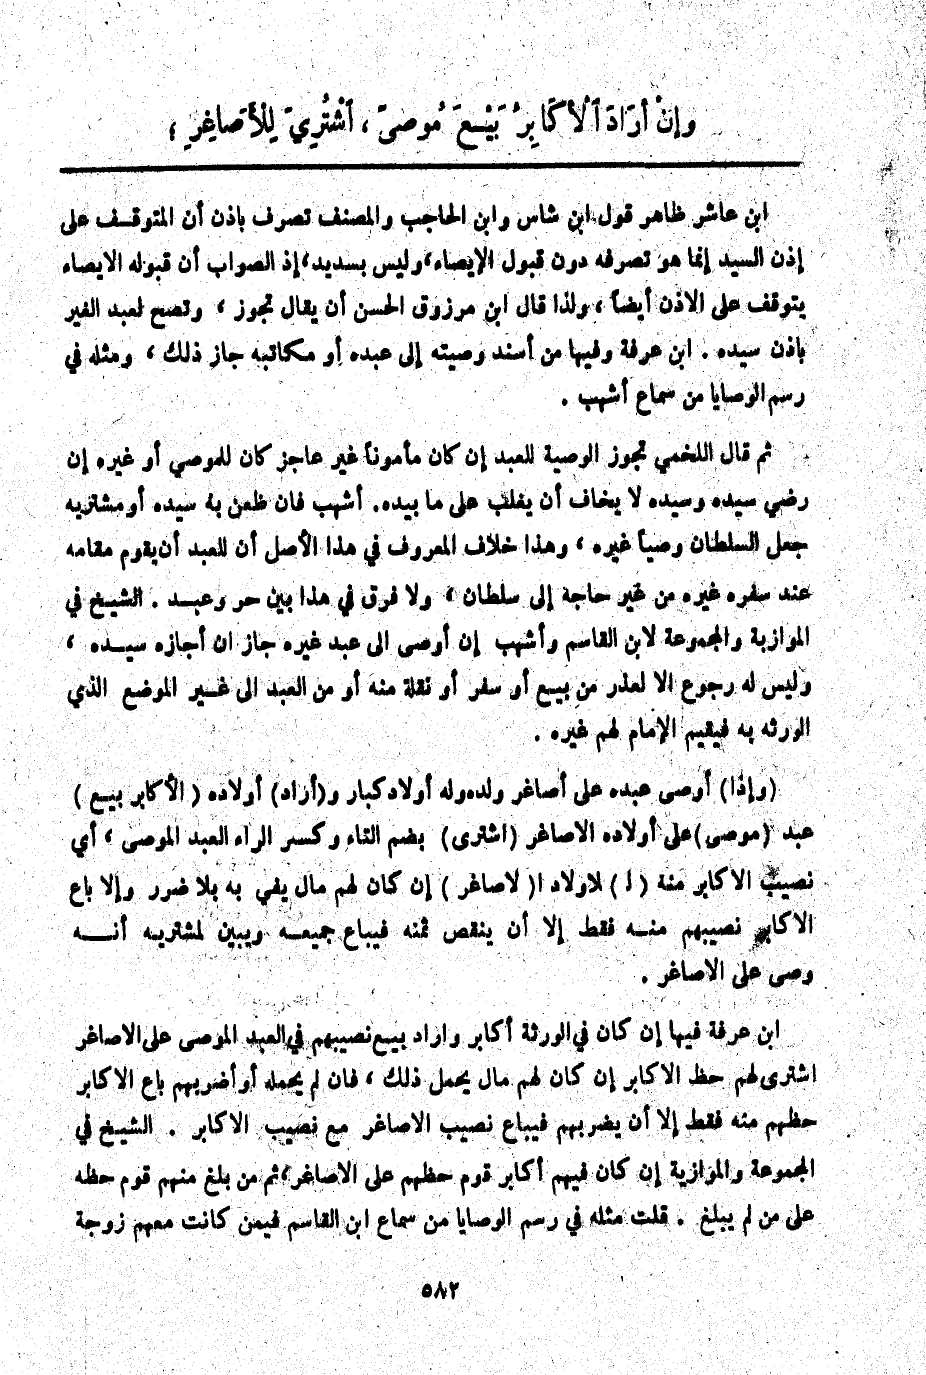 وَإِنْ أَرَادَ ٱلْأَكَابِرُ بَيْعَ مُوصىً ، ٱشْتُرِيَ لِلْأَصَاغِرِ ؛
ابن عاشر ظاهر قول ابن شاس وابن الحاجب والمصنف تصرف باذن أن المتوقف على
إذن السيد إنما هو تصرفه دون قبول الإيصاء، وليس بسديد، إذ الصواب أن قبوله الايصاء
يتوقف على الاذن أيضاً ، ولذا قال ابن مرزوق الحسن أن يقال تجوز ، وتصح لعبد الغير
باذن سيده . ابن عرفة وفيها من أسند وصيته إلى عبده أو مكاتبه جاز ذلك ، ومثله في
رسم الوصايا من سماع أشهب .
ثم قال اللخمي تجوز الوصية للعبد إن كان مأموناً غير عاجز كان للموصي أو غيره إن
رضي سيده وسيده لا يخاف أن يغلب على ما بيده. أشهب فان ظعن به سيده أو مشتريه
جعل السلطان وصياً غيره ، وهذا خلاف المعروف في هذا الأصل أن للعبد أن يقوم مقامه
عند سفره غيره من غير حاجة إلى سلطان ، ولا فرق في هذا بين حر وعبد . الشيخ في
الموازية والمجموعة لابن القاسم وأشهب إن أوصى الى عبد غيره جاز ان أجازه سيده ،
وليس له رجوع الا لعذر من بيع أو سفر أو نقلة منه أو من العبد الى غير الموضع الذي
الورثه به فيقيم الإمام لهم غيره .
(وإذا) أوصى عبده على أصاغر ولده وله أولاد كبار و(أراد) أولاده ( الأكابر بيع )
عبد (موصى) على أولاده الاصاغر (اشترى) بضم التاء وكسر الراء العبد الموصى ، أي
نصيب الاكابر منه ( لـ ) للاولاد ا( لاصاغر ) إن كان لهم مال يفي به بلا ضرر وإلا باع
الاكابر نصيبهم منه فقط إلا أن ينقص ثمنه فيباع جميعه ويبين لمشتريه أنه
وصى على الاصاغر .
ابن عرفة فيها إن كان في الورثة أكابر واراد بيع نصيبهم في العبد الموصى على الاصاغر
اشترى لهم حظ الاكابر إن كان لهم مال يحمل ذلك ، فان لم يحمله أو أضر بهم باع الاكابر
حظهم منه فقط إلا أن يضر بهم فيباع نصيب الاصاغر مع نصيب الاكابر . الشيخ في
المجموعة والموازية إن كان فيهم أكابر قوم حظهم على الاصاغر، ثم من بلغ منهم قوم حظه
على من لم يبلغ . قلت مثله في رسم الوصايا من سماع ابن القاسم فيمن كانت معهم زوجة
٥٨٢